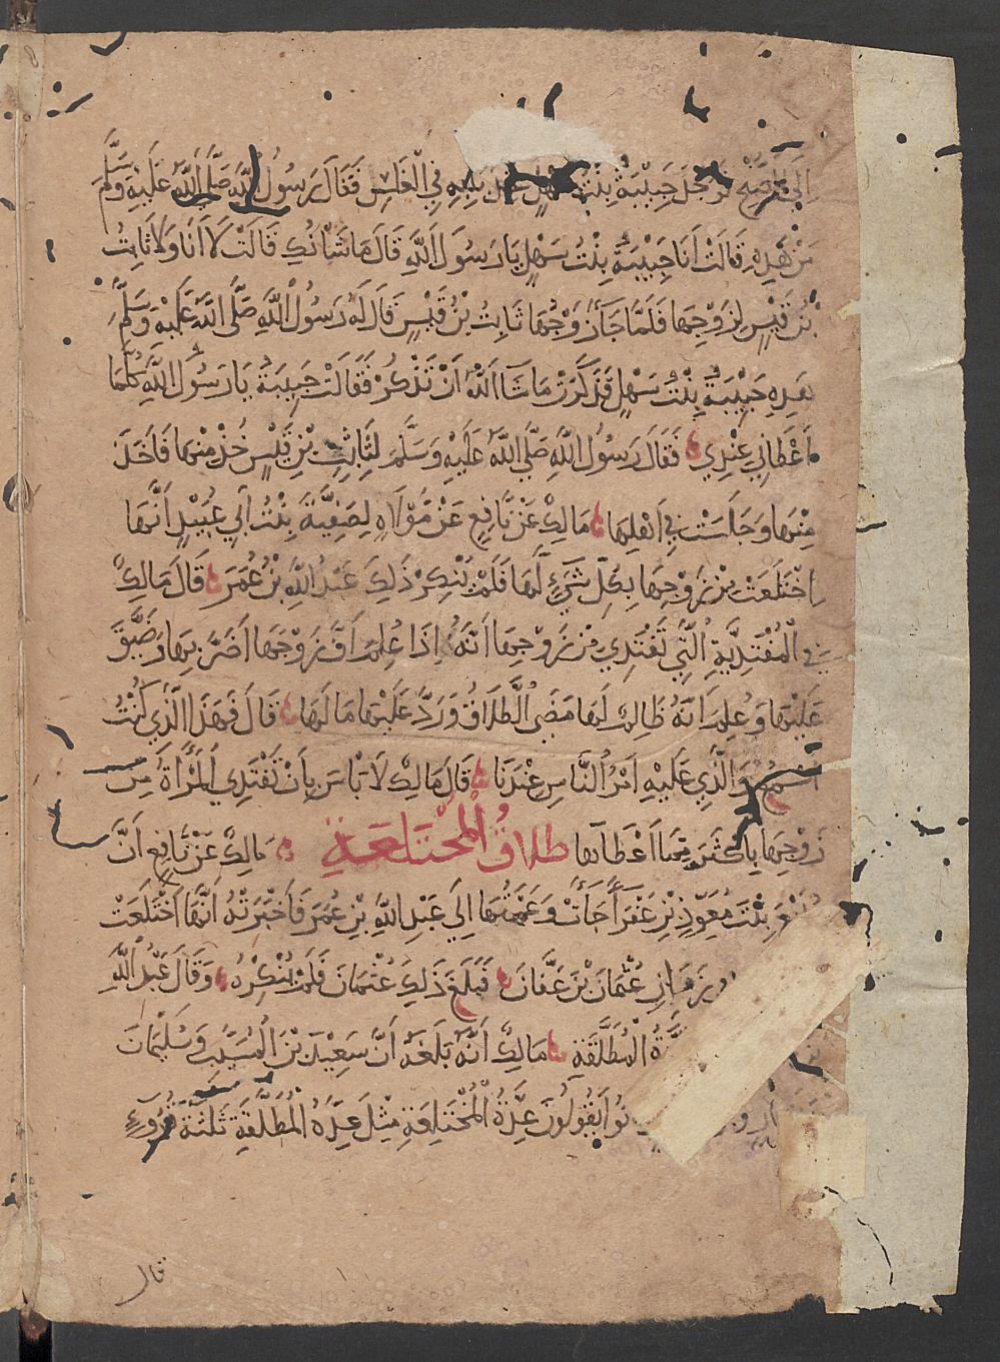 إِلَى الصُّبْحِ فَوَجَدَ حَبِيبَةَ بِنْتَ سَهْلٍ عِنْدَ بَابِهِ فِي الْغَلَسِ فَقَالَ رَسُولُ اللَّهِ صَلَّى اللَّهُ عَلَيْهِ وَسَلَّمَ
مَنْ هَذِهِ قَالَتْ أَنَا حَبِيبَةُ بِنْتُ سَهْلٍ يَا رَسُولَ اللَّهِ قَالَ مَا شَأْنُكِ قَالَتْ لَا أَنَا وَلَا ثَابِتُ
بْنُ قَيْسٍ لِزَوْجِهَا فَلَمَّا جَاءَ زَوْجُهَا ثَابِتُ بْنُ قَيْسٍ قَالَ لَهُ رَسُولُ اللَّهِ صَلَّى اللَّهُ عَلَيْهِ وَسَلَّمَ
هَذِهِ حَبِيبَةُ بِنْتُ سَهْلٍ قَدْ ذَكَرَتْ مَا شَاءَ اللَّهُ أَنْ تَذْكُرَ فَقَالَتْ حَبِيبَةُ يَا رَسُولَ اللَّهِ كُلُّمَا
أَعْطَانِي عِنْدِي فَقَالَ رَسُولُ اللَّهِ صَلَّى اللَّهُ عَلَيْهِ وَسَلَّمَ لِثَابِتِ بْنِ قَيْسٍ خُذْ مِنْهَا فَأَخَذَ
مِنْهَا وَجَلَسَتْ فِي أَهْلِهَا مَالِكٌ عَنْ نَافِعٍ عَنْ مَوْلَاةٍ لِصَفِيَّةَ بِنْتِ أَبِي عُبَيْدٍ أَنَّهَا
اخْتَلَعَتْ مِنْ زَوْجِهَا بِكُلِّ شَيْءٍ لَهَا فَلَمْ يُنْكِرْ ذَلِكَ عَبْدُ اللَّهِ بْنُ عُمَرَ قَالَ مَالِكٌ
فِي الْمُفْتَدِيَةِ الَّتِي تَفْتَدِي مِنْ زَوْجِهَا أَنَّهُ إِذَا عُلِمَ أَنَّ زَوْجَهَا أَضَرَّ بِهَا وَضَيَّقَ
عَلَيْهَا وَعُلِمَ أَنَّهُ ظَالِمٌ لَهَا مَضَى الطَّلَاقُ وَرَدَّ عَلَيْهَا مَالَهَا قَالَ فَهَذَا الَّذِي كُنْتُ
أَسْمَعُ وَالَّذِي عَلَيْهِ أَمْرُ النَّاسِ عِنْدَنَا قَالَ مَالِكٌ لَا بَأْسَ بِأَنْ تَفْتَدِيَ الْمَرْأَةُ مِنْ
زَوْجِهَا بِأَكْثَرَ مِمَّا أَعْطَاهَا طَلَاقُ الْمُخْتَلِعَةِ مَالِكٌ عَنْ نَافِعٍ أَنَّ
رُبَيِّعَ بِنْتَ مُعَوِّذِ بْنِ عَفْرَاءَ جَاءَتْ وَعَمَّتُهَا إِلَى عَبْدِ اللَّهِ بْنِ عُمَرَ فَأَخْبَرَتْهُ أَنَّهَا اخْتَلَعَتْ
زَمَانِ عُثْمَانَ بْنِ عَفَّانَ فَبَلَغَ ذَلِكَ عُثْمَانَ فَلَمْ يُنْكِرْهُ وَقَالَ عَبْدُ اللَّهِ
عِدَّةُ الْمُطَلَّقَةِ مَالِكٌ أَنَّهُ بَلَغَهُ أَنَّ سَعِيدَ بْنَ الْمُسَيِّبِ وَسُلَيْمَانَ
كَانُوا يَقُولُونَ عِدَّةُ الْمُخْتَلِعَةِ مِثْلُ عِدَّةِ الْمُطَلَّقَةِ ثَلَاثَةَ قُرُوءٍ
قال